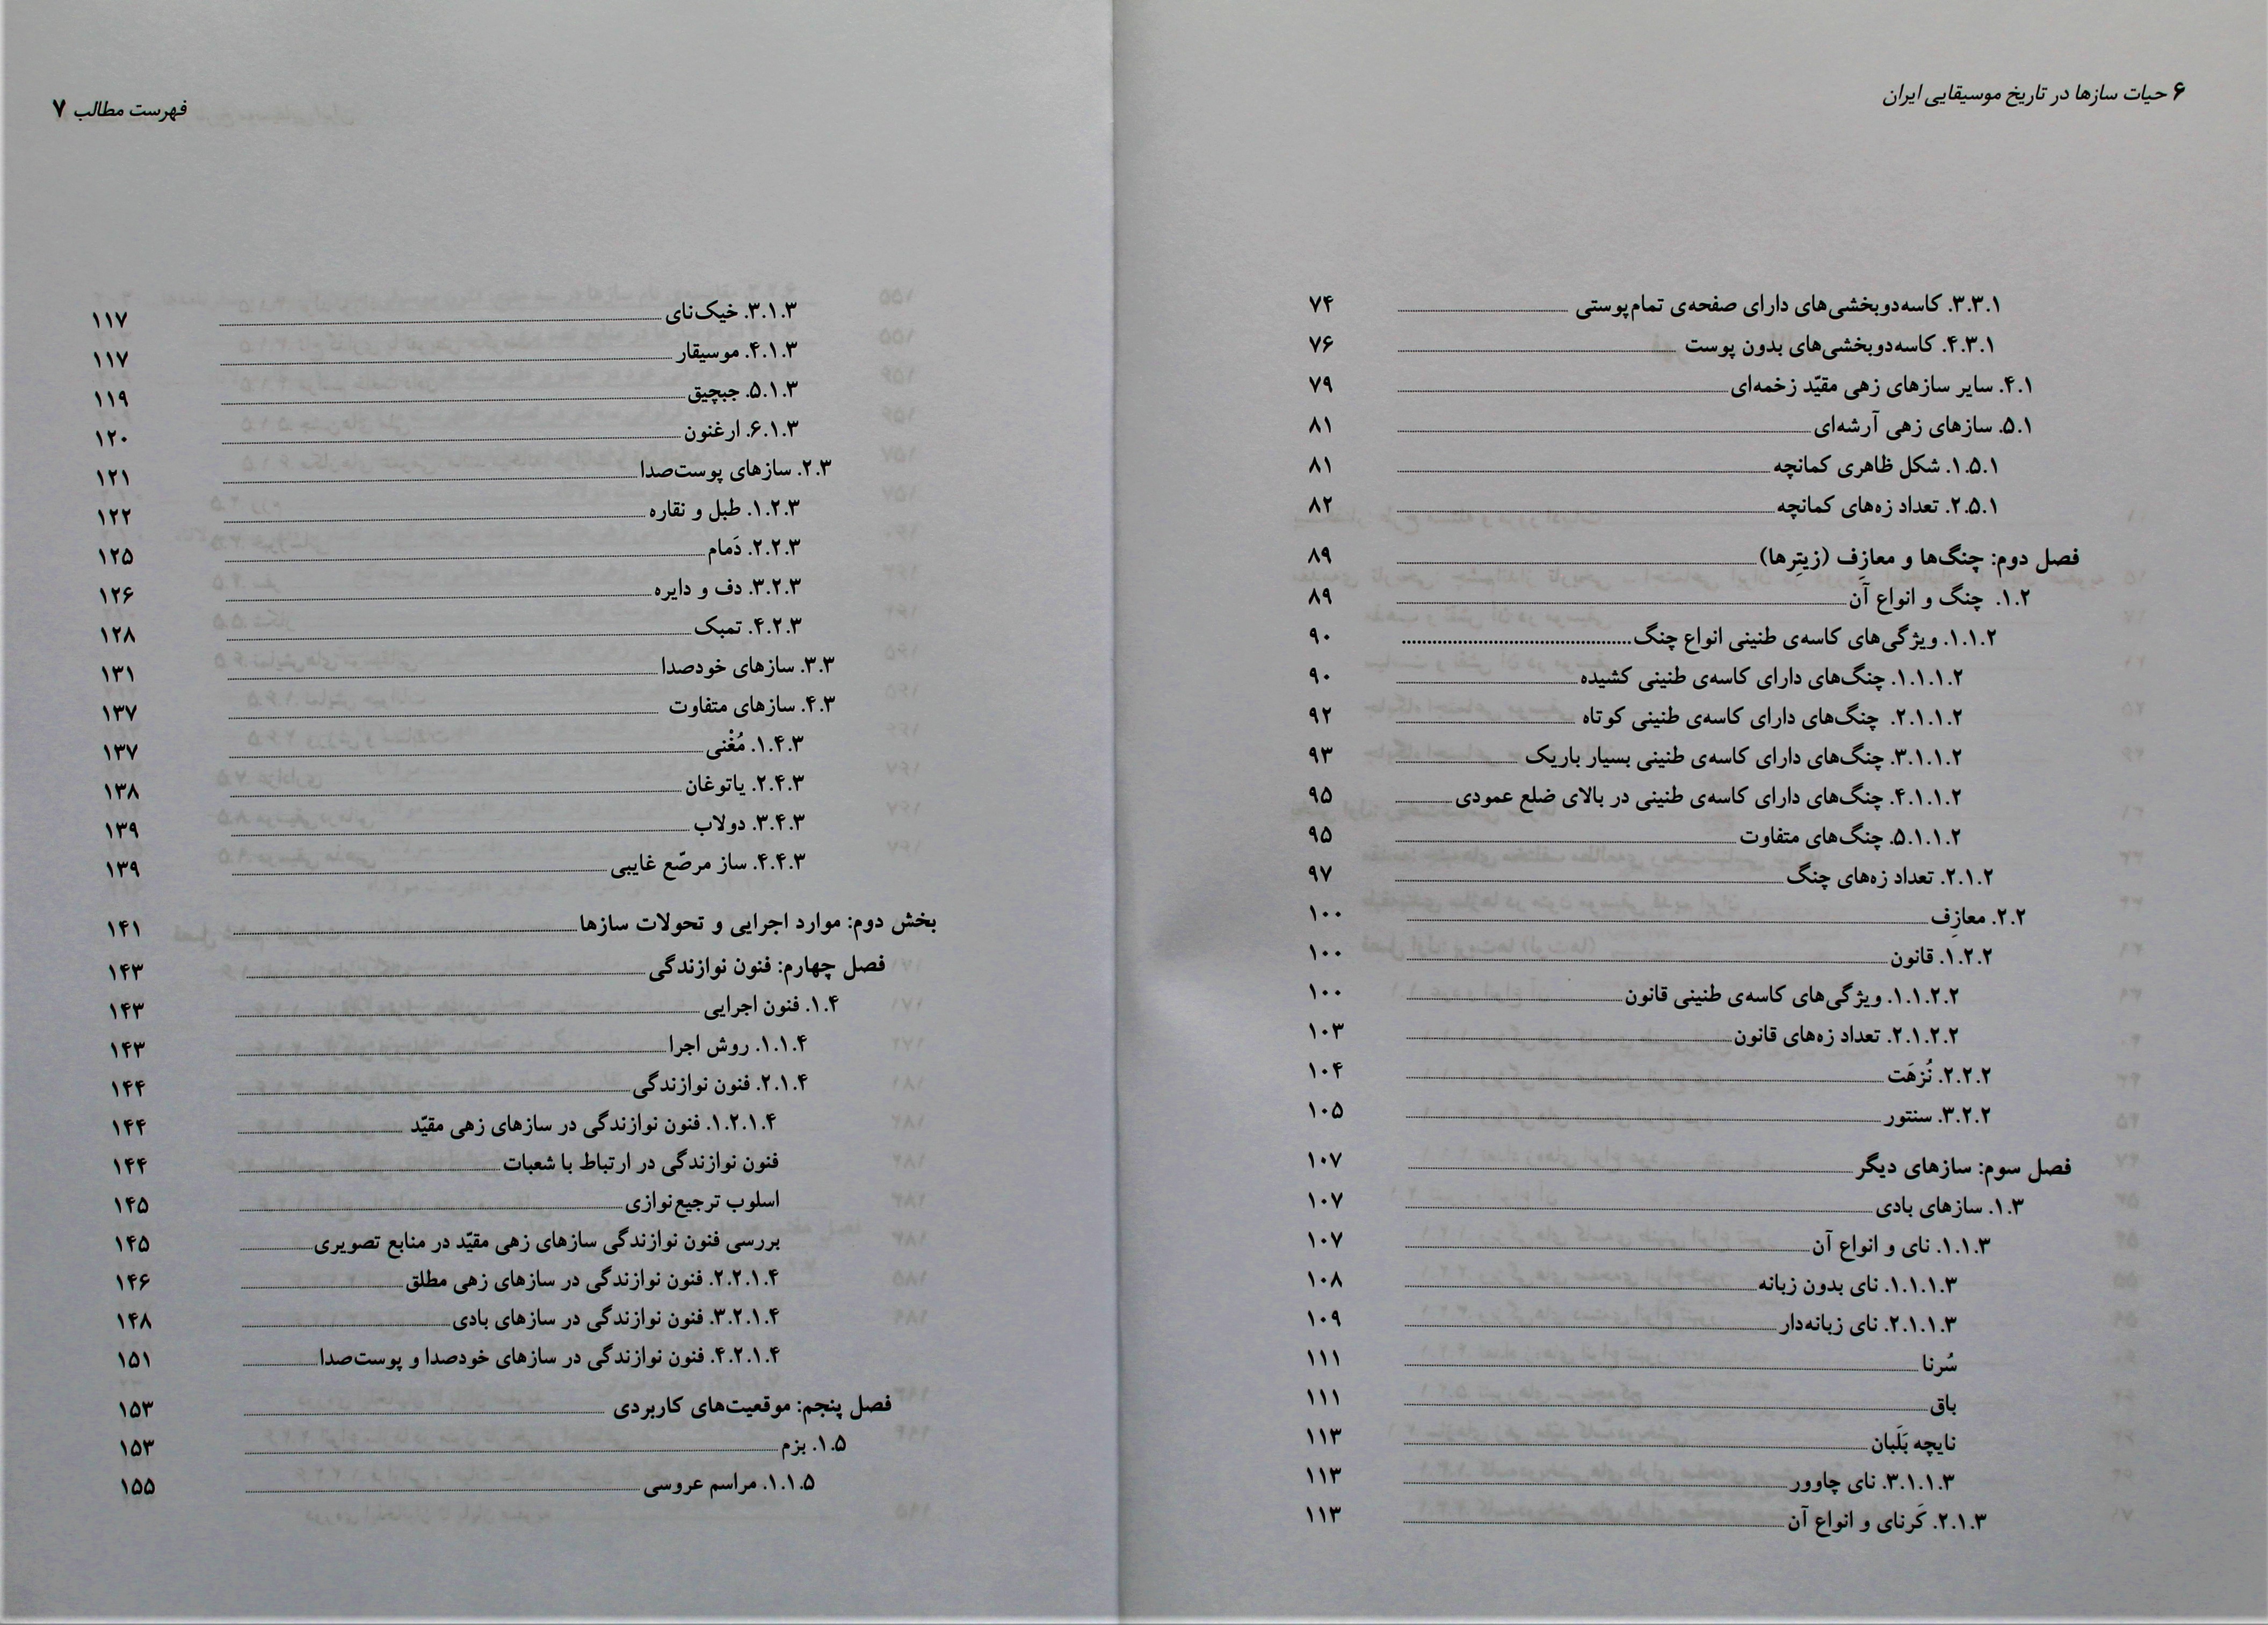 ۶ حیات سازها در تاریخ موسیقایی ایران
۳.۳.۱. کاسه‌دوبخشی‌های دارای صفحه‌ی تمام‌پوستی ۷۴
۴.۳.۱. کاسه‌دوبخشی‌های بدون پوست ۷۶
۴.۱. سایر سازهای زهی مقیّد زخمه‌ای ۷۹
۵.۱. سازهای زهی آرشه‌ای ۸۱
۱.۵.۱. شکل ظاهری کمانچه ۸۱
۲.۵.۱. تعداد زه‌های کمانچه ۸۲
فصل دوم: چنگ‌ها و معازِف (زیتِرها) ۸۹
۱.۲. چنگ و انواع آن ۸۹
۱.۱.۲. ویژگی‌های کاسه‌ی طنینی انواع چنگ ۹۰
۱.۱.۱.۲. چنگ‌های دارای کاسه‌ی طنینی کشیده ۹۰
۲.۱.۱.۲. چنگ‌های دارای کاسه‌ی طنینی کوتاه ۹۲
۳.۱.۱.۲. چنگ‌های دارای کاسه‌ی طنینی بسیار باریک ۹۳
۴.۱.۱.۲. چنگ‌های دارای کاسه‌ی طنینی در بالای ضلع عمودی ۹۵
۵.۱.۱.۲. چنگ‌های متفاوت ۹۵
۲.۱.۲. تعداد زه‌های چنگ ۹۷
۲.۲. معازِف ۱۰۰
۱.۲.۲. قانون ۱۰۰
۱.۱.۲.۲. ویژگی‌های کاسه‌ی طنینی قانون ۱۰۰
۲.۱.۲.۲. تعداد زه‌های قانون ۱۰۳
۲.۲.۲. نُزهَت ۱۰۴
۳.۲.۲. سنتور ۱۰۵
فصل سوم: سازهای دیگر ۱۰۷
۱.۳. سازهای بادی ۱۰۷
۱.۱.۳. نای و انواع آن ۱۰۷
۱.۱.۱.۳. نای بدون زبانه ۱۰۸
۲.۱.۱.۳. نای زبانه‌دار ۱۰۹
سُرنا ۱۱۱
باق ۱۱۱
نایچه بَلَبان ۱۱۳
۳.۱.۱.۳. نای چاوور ۱۱۳
۲.۱.۳. کَرنای و انواع آن ۱۱۳
فهرست مطالب ۷
۳.۱.۳. خیک‌نای ۱۱۷
۴.۱.۳. موسیقار ۱۱۷
۵.۱.۳. جبچیق ۱۱۹
۶.۱.۳. ارغنون ۱۲۰
۲.۳. سازهای پوست‌صدا ۱۲۱
۱.۲.۳. طبل و نقاره ۱۲۲
۲.۲.۳. دَمام ۱۲۵
۳.۲.۳. دف و دایره ۱۲۶
۴.۲.۳. تمبک ۱۲۸
۳.۳. سازهای خودصدا ۱۳۱
۴.۳. سازهای متفاوت ۱۳۷
۱.۴.۳. مُغْنی ۱۳۷
۲.۴.۳. یاتوغان ۱۳۸
۳.۴.۳. دولاب ۱۳۹
۴.۴.۳. ساز مرصّع غایبی ۱۳۹
بخش دوم: موارد اجرایی و تحولات سازها ۱۴۱
فصل چهارم: فنون نوازندگی ۱۴۳
۱.۴. فنون اجرایی ۱۴۳
۱.۱.۴. روش اجرا ۱۴۳
۲.۱.۴. فنون نوازندگی ۱۴۴
۱.۲.۱.۴. فنون نوازندگی در سازهای زهی مقیّد ۱۴۴
فنون نوازندگی در ارتباط با شعبات ۱۴۴
اسلوب ترجیع‌نوازی ۱۴۵
بررسی فنون نوازندگی سازهای زهی مقیّد در منابع تصویری ۱۴۵
۲.۲.۱.۴. فنون نوازندگی در سازهای زهی مطلق ۱۴۶
۳.۲.۱.۴. فنون نوازندگی در سازهای بادی ۱۴۸
۴.۲.۱.۴. فنون نوازندگی در سازهای خودصدا و پوست‌صدا ۱۵۱
فصل پنجم: موقعیت‌های کاربردی ۱۵۳
۱.۵. بزم ۱۵۳
۱.۱.۵. مراسم عروسی ۱۵۵